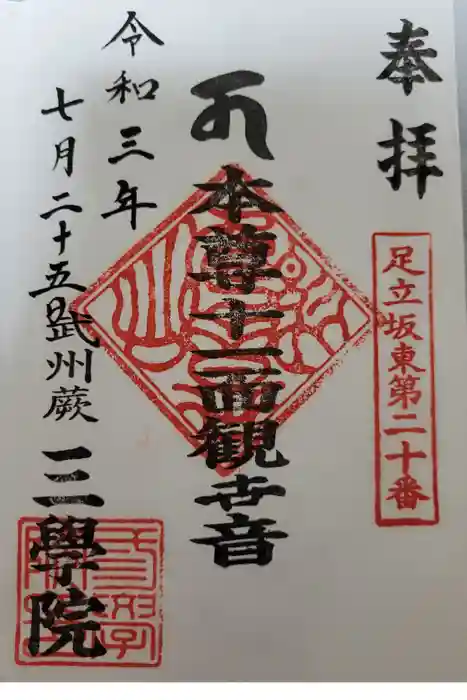 奉拝
足立坂東第二十番
本尊十一面観世音
令和三年
七月二十五
武州蕨
三學院